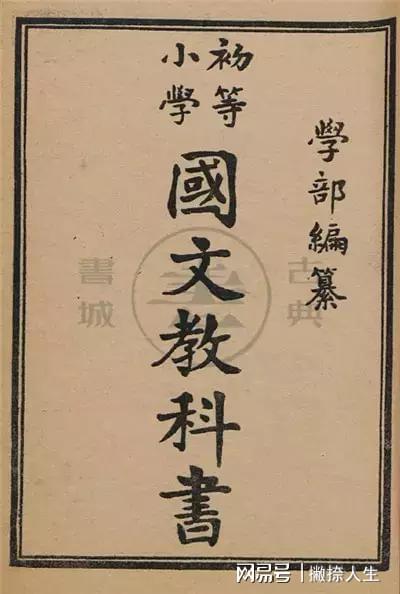 學部編纂
初等
小學
國文教科書
古典
書城
网易号 | 撇捺人生